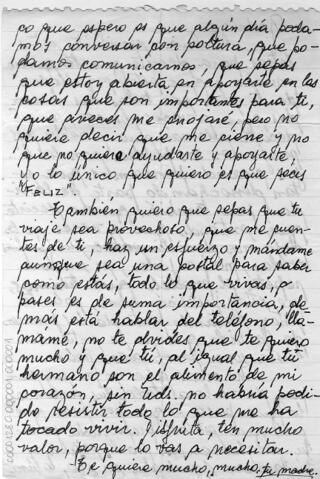 co que espero es que algún día poda-
mos conversar con soltura, que po-
damos comunicarnos, que sepas
que estoy abierta en apoyarte en las
cosas que son importantes para ti,
que aveces me enojaré, pero no
quiere decir que me cierre y no
que no quiera ayudarte y apoyarte,
yo lo único que quiero es que seas
"FELIZ".
También quiero que sepas que tu
viaje sea provechoso, que me cuen-
tes de ti, haz un esfuerzo y mándame
aunque sea una postal para saber
como estás, todo lo que vivas, o
pases es de suma importancia, de-
más está hablar del teléfono, llá-
máme, no te olvides que te quiero
mucho y que tú, al igual que tu
hermano son el alimento de mi
corazón, sin uds. no habría podi-
do resistir todo lo que me ha
tocado vivir. Disfruta, ten mucho
valor, porque lo vas a necesitar.
Te quiere mucho, mucho, tu madre.